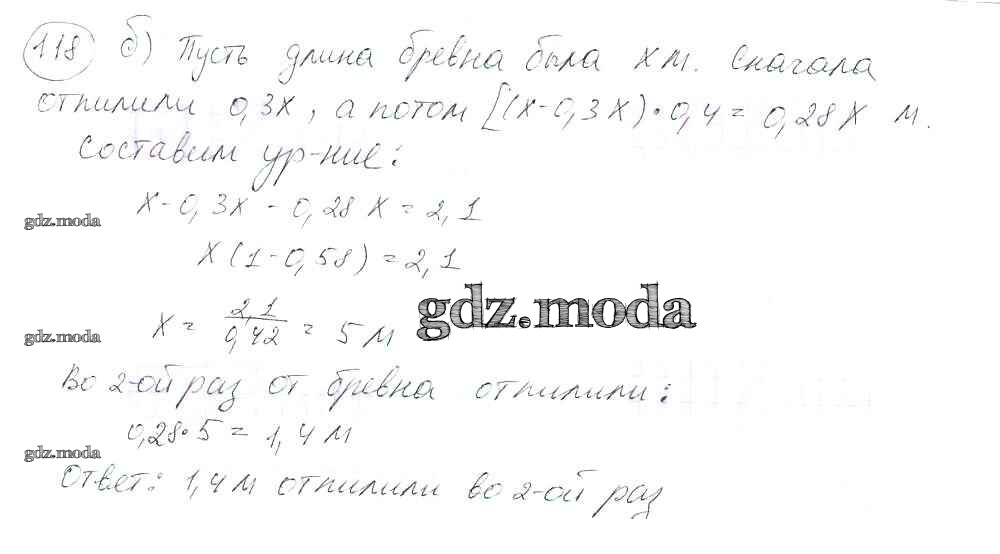 118 б) Пусть длина бревна была x м. Сначала
отпилили 0,3x, а потом [(x-0,3x)·0,4=0,28x м.
Составим ур-ние:
x-0,3x-0,28x=2,1
gdz.moda
x(1-0,58)=2,1
gdz.moda
x = 2,1/0,42 = 5 м
gdz.moda
Во 2-ой раз от бревна отпилили:
0,28·5=1,4м
gdz.moda
Ответ: 1,4м отпилили во 2-ой раз